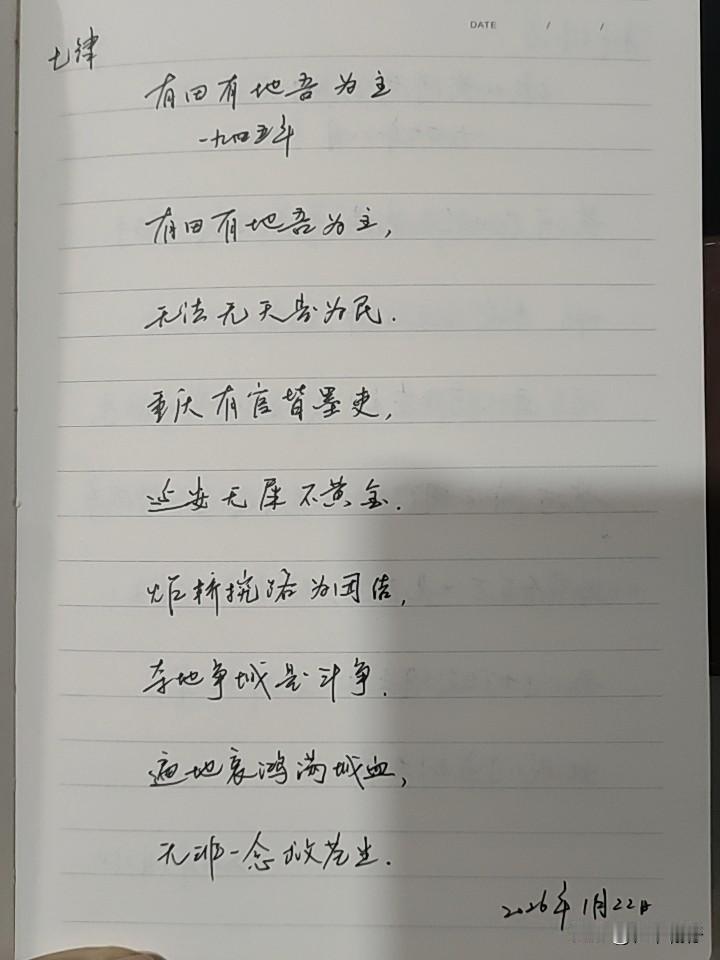 DATE / /
七律
有田有地吾为主
一九四五年
有田有地吾为主,
无法无天吾为民.
重庆有官皆墨吏,
延安无屎不黄金.
炸桥挖路为团结,
夺地争城是斗争.
遍地哀鸿满城血,
无非一念救苍生.
2026年1月22日